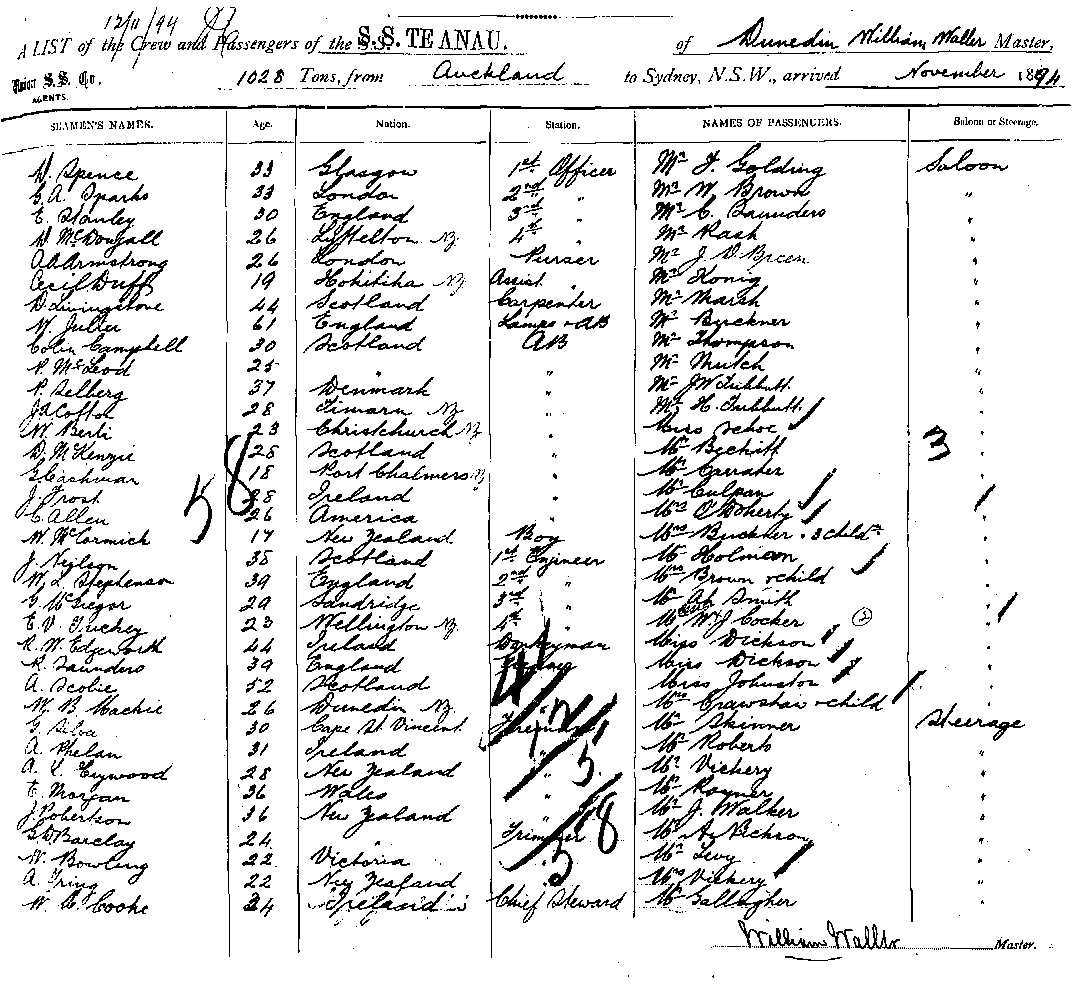 12/11/94
A LIST of the Crew and Passengers of the S.S. TE ANAU. of Dunedin William Waller Master,
Union S.S. Co. AGENTS. 1028 Tons, from Auckland to Sydney, N.S.W., arrived November 1894
SEAMEN'S NAMES. Age. Nation. Station. NAMES OF PASSENGERS. Saloon or Steerage.
Spence 33 Glasgow 1st Officer Mr J. Golding Saloon
Sparks 33 London 2nd " Mr W. Brown "
E. Stanley 30 England 3rd " Mr C. Saunders "
D. McDougall 26 Lyttelton NZ. 4th " Mr Rash "
Armstrong 26 London Purser Mr J. Breen "
Cecil Duff 19 Hokitika NZ Assist. Mr Konig "
D. Livingstone 44 Scotland Carpenter Mr Marsh "
61 England Lamps & AB Mr "
Colin Campbell 30 Scotland AB Mr Thompson "
McLeod 25 " " Mr Mutch "
P. Selberg 37 Denmark " Mr JW Tubbutt "
28 Timaru NZ " Mr H. Tubbutt "
W. Berti 23 Christchurch NZ " Miss "
D. McKenzie 28 Scotland " Mr 3
18 Port Chalmers NZ " Mr Carraher "
J. Frost 28 Ireland " Mr Culpan "
C. Allen 26 America " Mrs O'Doherty "
W. McCormick 17 New Zealand Boy Mrs & 3 child "
J. Neilson 38 Scotland 1st Engineer Mr Holman "
W. L. Stephenson 39 England 2nd " Mrs Brown & child "
G. McGregor 29 Sandridge 3rd " Mr Smith "
E. V. Tuckey 23 Wellington NZ. 4th " Cocker (2) "
R. W. Edgeworth 44 Ireland Donkeyman Miss Dickson "
R. Saunders 39 England Miss Dickson "
A. Scobie 52 Scotland Miss Johnston "
W. B. Mackie 26 Dunedin NZ. Mrs Crawshaw & child "
G. Silva 30 Cape St Vincent Mr Skinner Steerage
A. Phelan 31 Ireland " Mr Roberts "
28 New Zealand " Mr Vickery "
E. Morgan 36 Wales " Mr Rayner "
J. Robertson 36 New Zealand " Mr J. Walker "
Barclay 24 " Trimmer Mr "
W. Bowling 22 Victoria " Mr Levy "
A. Tring 22 New Zealand " Mrs Vickery "
W. Cooke 34 Ireland Chief Steward Mr Gallagher "
58
William Waller Master.